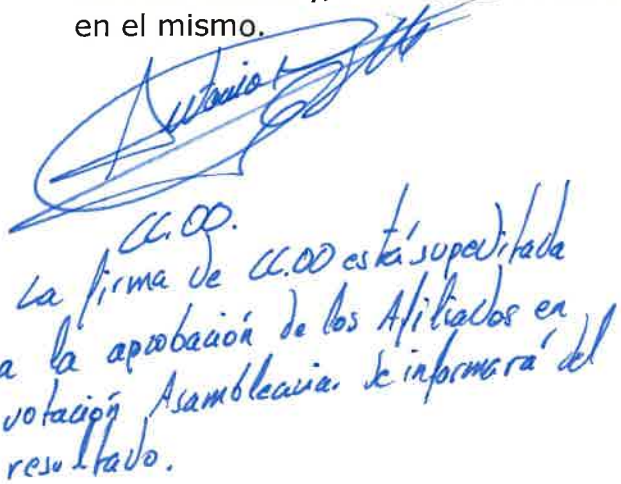 en el mismo.
Antonio
CC.OO.
La firma de CC.OO está supeditada
a la aprobación de los Afiliados en
votación Asamblearia. Se informará del
resultado.